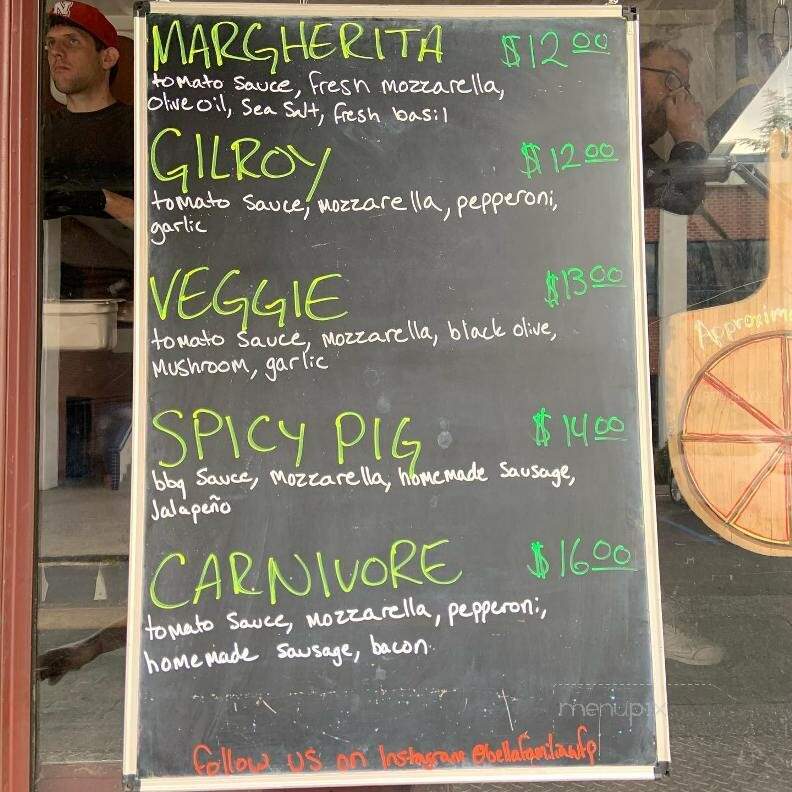 MARGHERITA $12.00
tomato sauce, fresh mozzarella,
olive oil, Sea Salt, fresh basil
GILROY $12.00
tomato sauce, mozzarella, pepperoni,
garlic
VEGGIE $13.00
tomato sauce, mozzarella, black olive,
mushroom, garlic
SPICY PIG $14.00
bbq sauce, mozzarella, homemade sausage,
Jalapeño
CARNIVORE $16.00
tomato sauce, mozzarella, pepperoni,
homemade sausage, bacon
follow us on Instagram @bellafamiliawfp
menupix
N